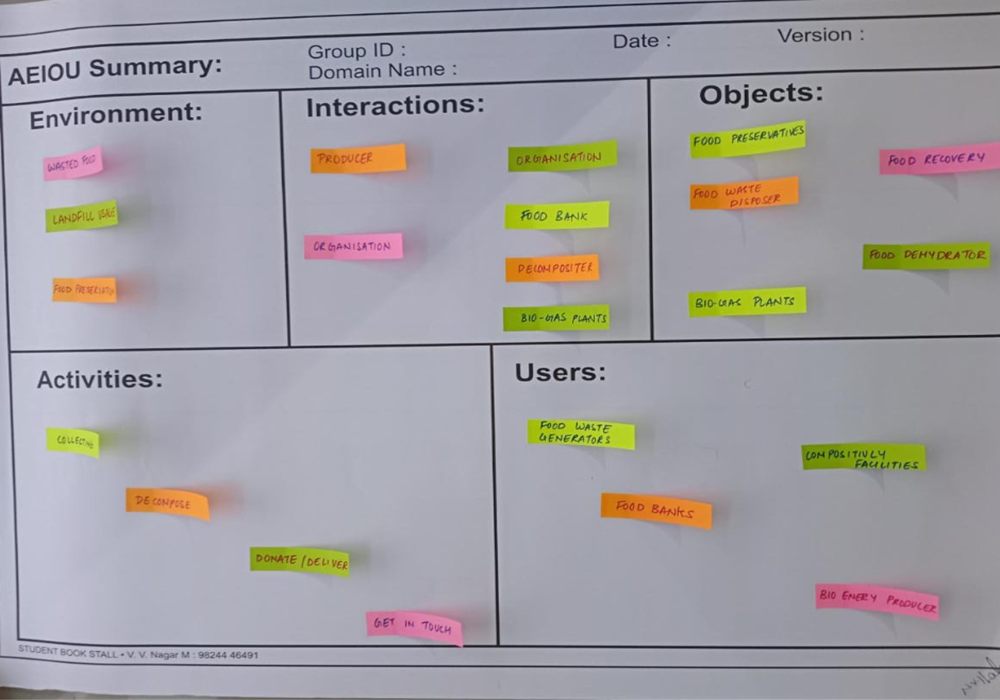 AEIOU Summary:
Group ID :
Domain Name :
Date :
Version :
Environment:
WASTED FOOD
LANDFILL
FOOD
Interactions:
PRODUCER
ORGANISATION
ORGANISATION
FOOD BANK
DECOMPOSITER
BIO-GAS PLANTS
Objects:
FOOD PRESERVATIVES
FOOD RECOVERY
FOOD WASTE
DISPOSER
FOOD DEHYDRATOR
BIO-GAS PLANTS
Activities:
COLLECTING
DECOMPOSE
DONATE/DELIVER
GET IN TOUCH
Users:
FOOD WASTE
GENERATORS
COMPOSITIVLY
FACILITIES
FOOD BANKS
BIO ENERY PRODUCER
STUDENT BOOK STALL • V. V. Nagar M : 98244 46491